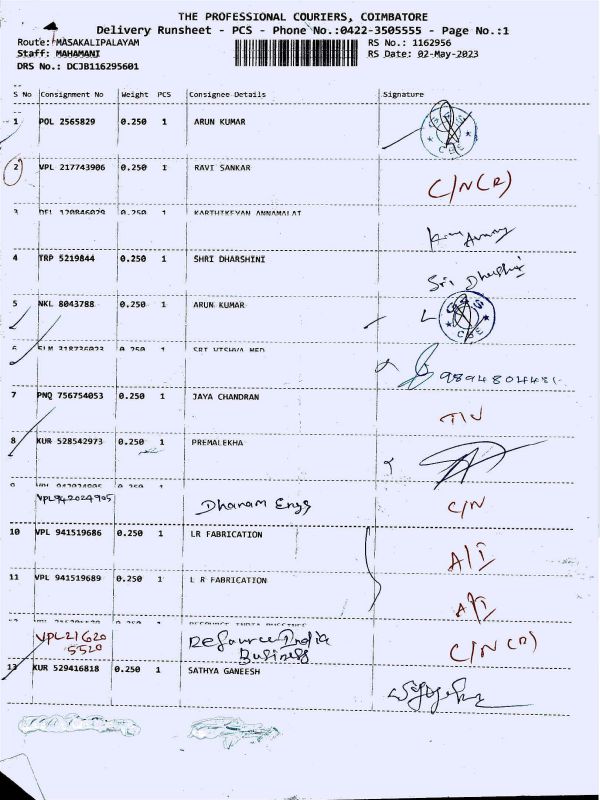 THE PROFESSIONAL COURIERS, COIMBATORE
Delivery Runsheet - PCS - Phone No.:0422-3505555 - Page No.:1
Route: MASAKALIPALAYAM RS No.: 1162956
Staff: MAHAMANI RS Date: 02-May-2023
DRS No.: DCJB116295601
S No Consignment No Weight PCS Consignee Details Signature
1 POL 2565829 0.250 1 ARUN KUMAR
CBE
2 VPL 217743906 0.250 1 RAVI SANKAR
C/N(R)
3 DEL 170846079 0.250 KARTHIKEYAN ANNAMALAI
4 TRP 5219844 0.250 1 SHRI DHARSHINI
Sri Dharshini
5 NKL 8043788 0.250 1 ARUN KUMAR
CBE
6 SLM 318736023 0.250 SRI VISHVA MED
9894804481
7 PNQ 756754053 0.250 1 JAYA CHANDRAN
8 KUR 528542973 0.250 1 PREMALEKHA
9 VPL 942024905 0.250
VPL942024905 Dhanam Engg
C/N
10 VPL 941519686 0.250 1 LR FABRICATION
A/I
11 VPL 941519689 0.250 1 L R FABRICATION
A/I
RESOURCE INDIA BUSINESS
VPL21620 Resource India
5520 Business
C/N(R)
13 KUR 529416818 0.250 1 SATHYA GANEESH